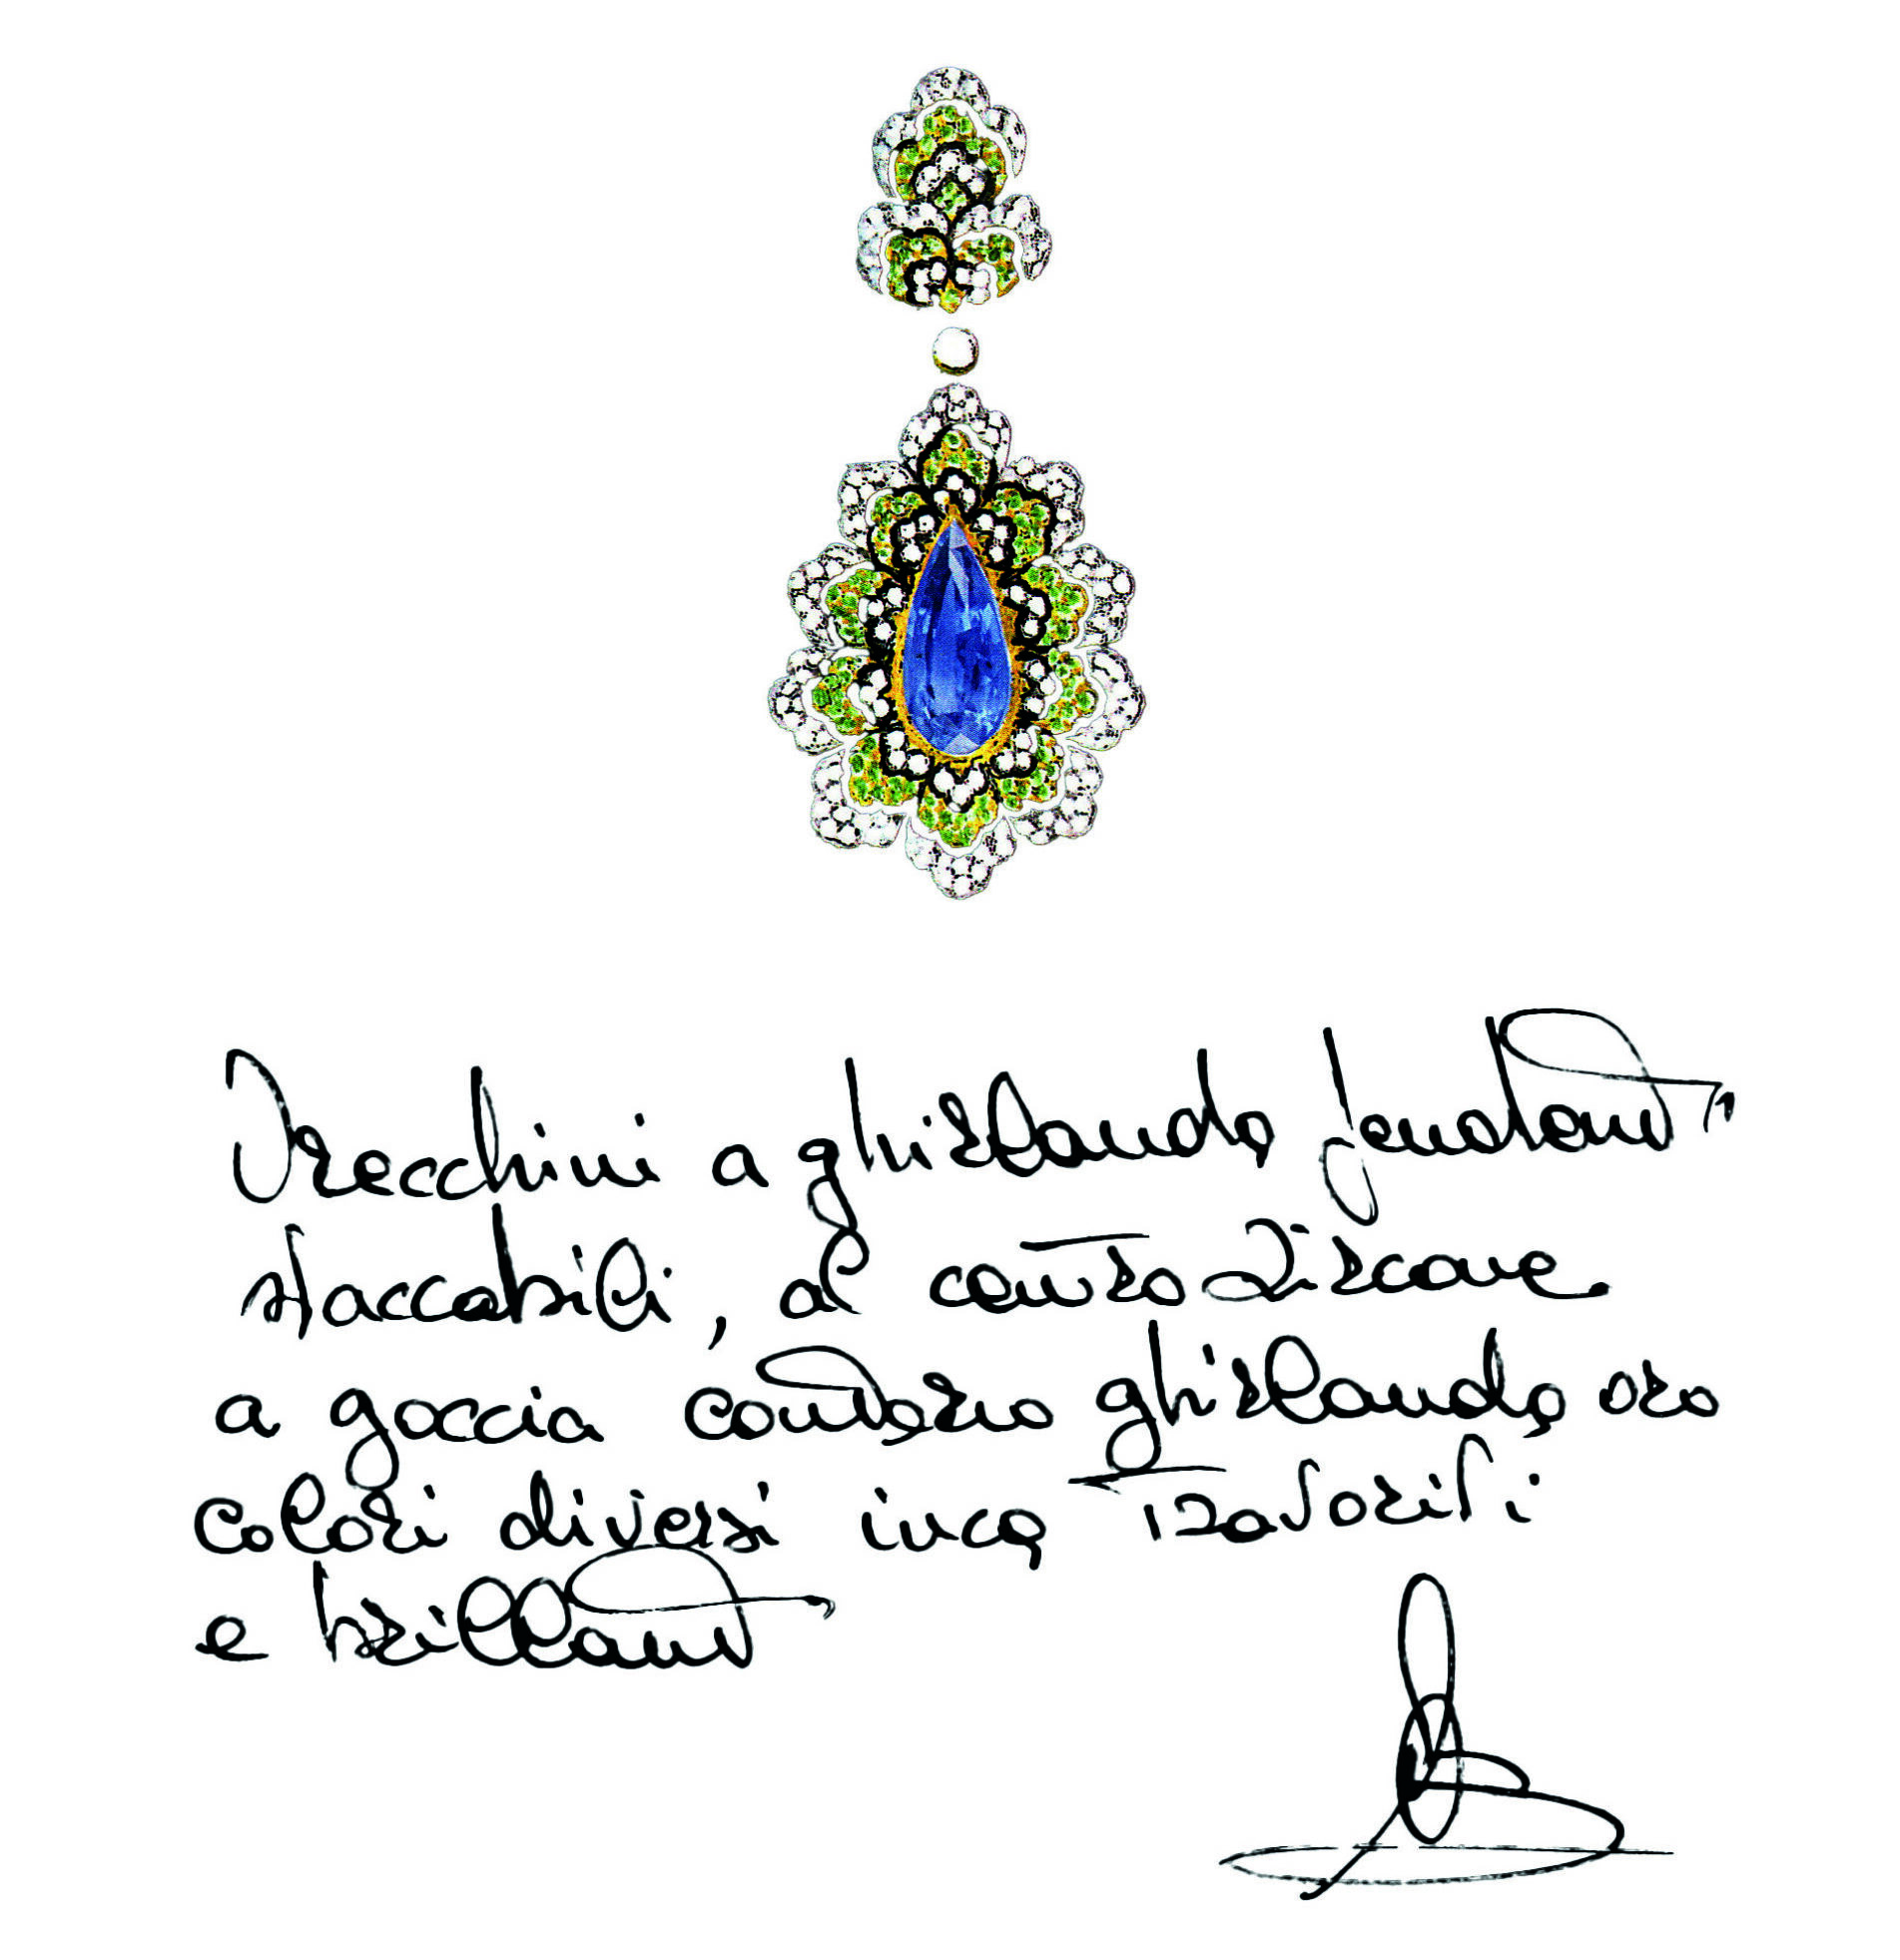 Orecchini a ghirlanda pendenti
staccabili, al centro Zircone
a goccia contorno ghirlanda oro
colori diversi inca
e brillanti